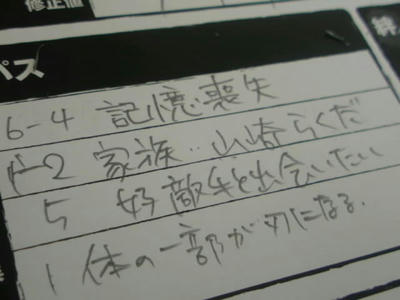 修正値
パス
6-4 記憶喪失
家族‥山崎らくだ
5 好敵手と出会いたい
1 体の一部が刃になる.